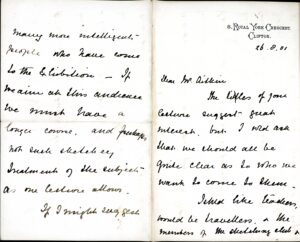 many more intelligent
people who have come
to the Exhibition – If
we aim at this audience
we must have a
longer course. and perhaps
not such sketchy
treatment of the subject
as one lecture allows.
If I might suggest
8, ROYAL YORK CRESCENT,
CLIFTON.
26.8.01
Dear Mr. Aitken
The titles of your
lecture suggest great
interest. but I wd ask
that we should all be
quite clear as to who we
want to come to them.
I shd like teachers,
would be travellers, & the
members of the sketching club &